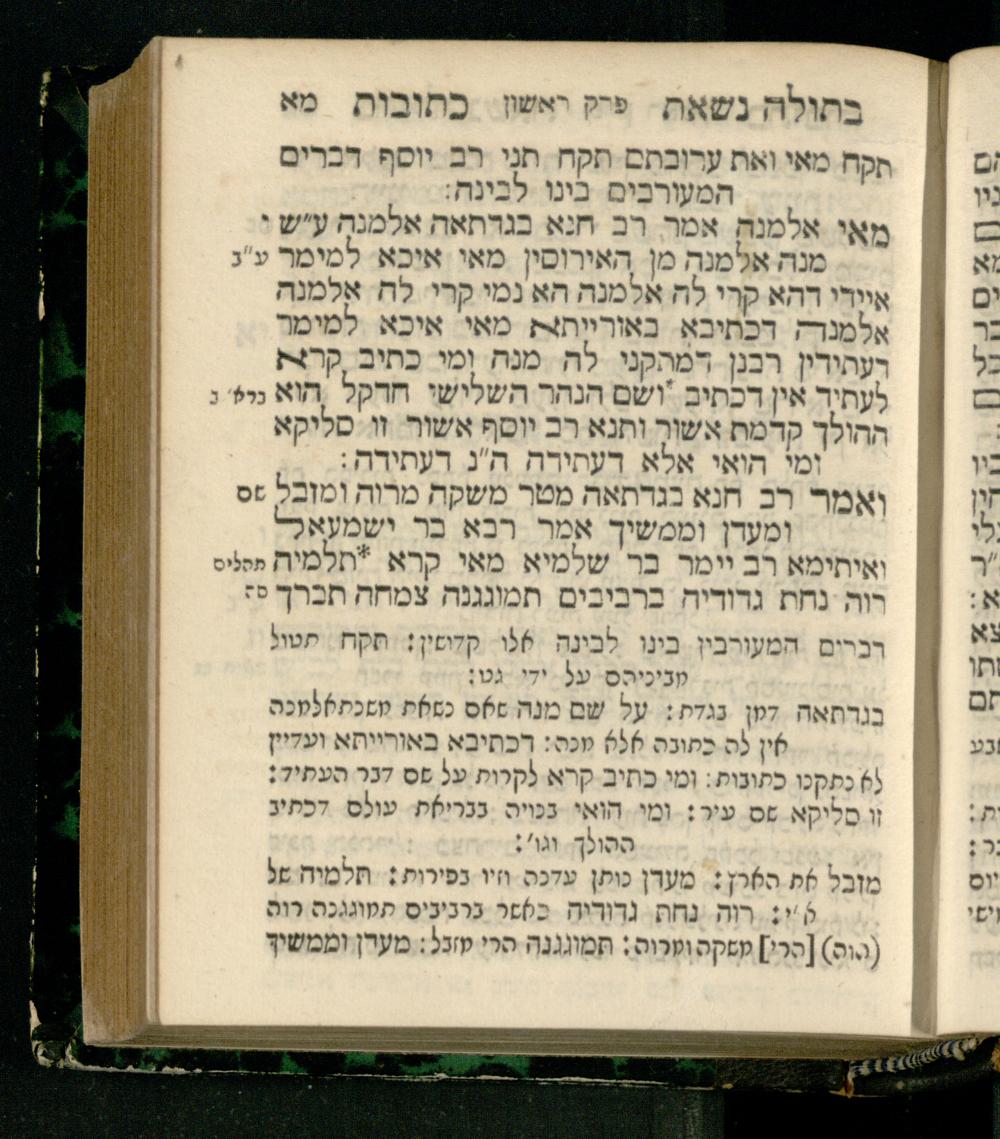 בתולה נשאת פרק ראשון כתובות מא
תקח מאי ואת ערובתם תקח תני רב יוסף דברים
המעורבים בינו לבינה:
מאי אלמנה אמר רב חנא בגדתאה אלמנה ע״ש י
מנה אלמנה מן האירוסין מאי איכא למימר ע״ב
איידי דהא קרי לה אלמנה הא נמי קרי לה אלמנה
אלמנה דכתיבא באורייתא מאי איכא למימר
דעתידין רבנן דמתקני לה מנה ומי כתיב קרא
לעתיד אין דכתיב *ושם הנהר השלישי חדקל הוא ברא׳ ב
ההולך קדמת אשור ותנא רב יוסף אשור זו סליקא
ומי הואי אלא דעתידה ה״נ דעתידה:
ואמר רב חנא בגדתאה מטר משקה מרוה ומזבל שם
ומעדן וממשיך אמר רבא בר ישמעאל
ואיתימא רב יימר בר שלמיא מאי קרא *תלמיה תהלים
רוה נחת גדודיה ברביבים תמוגגנה צמחה תברך סה
דברים המעורבין בינו לבינה אלו קדושין: תקח תטול
מביניהם על ידי גט:
בגדתאה דמן בגדת: על שם מנה שאם נשאת משנתאלמנה
אין לה כתובה אלא מנה: דכתיבא באורייתא ועדיין
לא נתקנו כתובות: ומי כתיב קרא לקרות על שם דבר העתיד:
זו סליקא שם עיר: ומי הואי בנויה בבריאת עולם דכתיב
ההולך וגו׳:
מזבל את הארץ: מעדן נותן עדנה וזיו בפירות: תלמיה של
א״י: רוה נחת גדודיה כאשר ברביבים תמוגגנה רוה
(הוה) [הרי] משקה ומרוה: תמוגגנה הרי מזבל: מעדן וממשיך